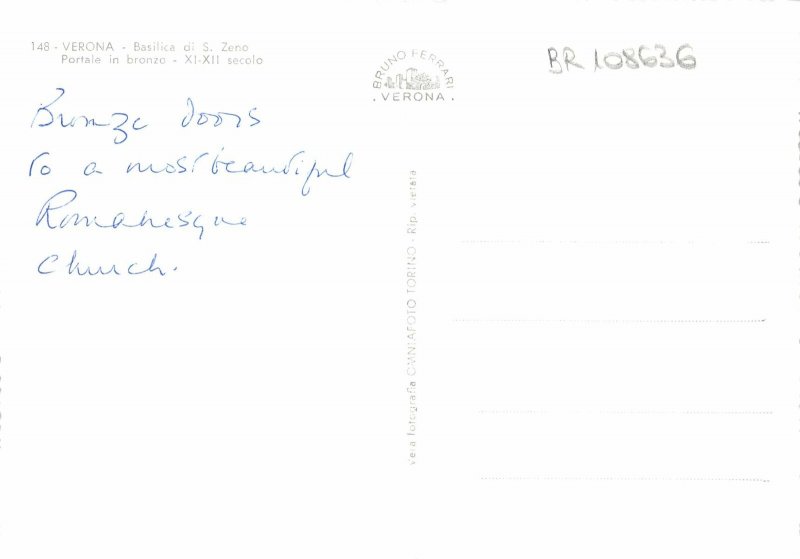 148 - VERONA - Basilica di S. Zeno
Portale in bronzo - XI-XII secolo
Bronze doors
to a most beautiful
Romanesque
Church.
BRUNO FERRARI
. VERONA .
BR 108636
Vera fotografia OMNIAFOTO TORINO - Rip. vietata